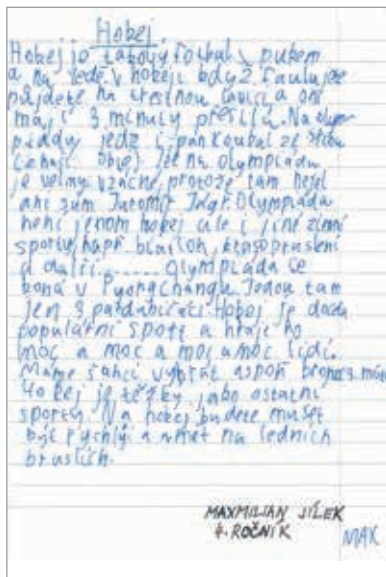 Hokej
Hokej je takový fotbal s pukem
a na ledě. v hokeji když faulujete
půjdete na trestnou lavici a oni
mají 3 minuty přesilu. Na olym-
piády jede i pan Koukal ze
Jet na olympiádu
je velmy vzácné protože tam nejel
ani sum Jaromír Jágr. Olympiáda
není jenom hokej ale i jiné zimní
sporty, např. biatlon, krasobruslení
a další....... Olympiáda se
koná v Pyongchangu. Jedou tam
jen 3 pardubičáci. Hokej je dost
populární sport a hraje ho
moc a moc a moc a moc lidí.
Máme šanci vybrat aspoň bronz
Hokej je těžký jako ostatní
sporty. Na hokej budete muset
být rychlý a umět na ledních
bruslích.
MAXMILIAN JÍLEK
4. ROČNÍK
MAX